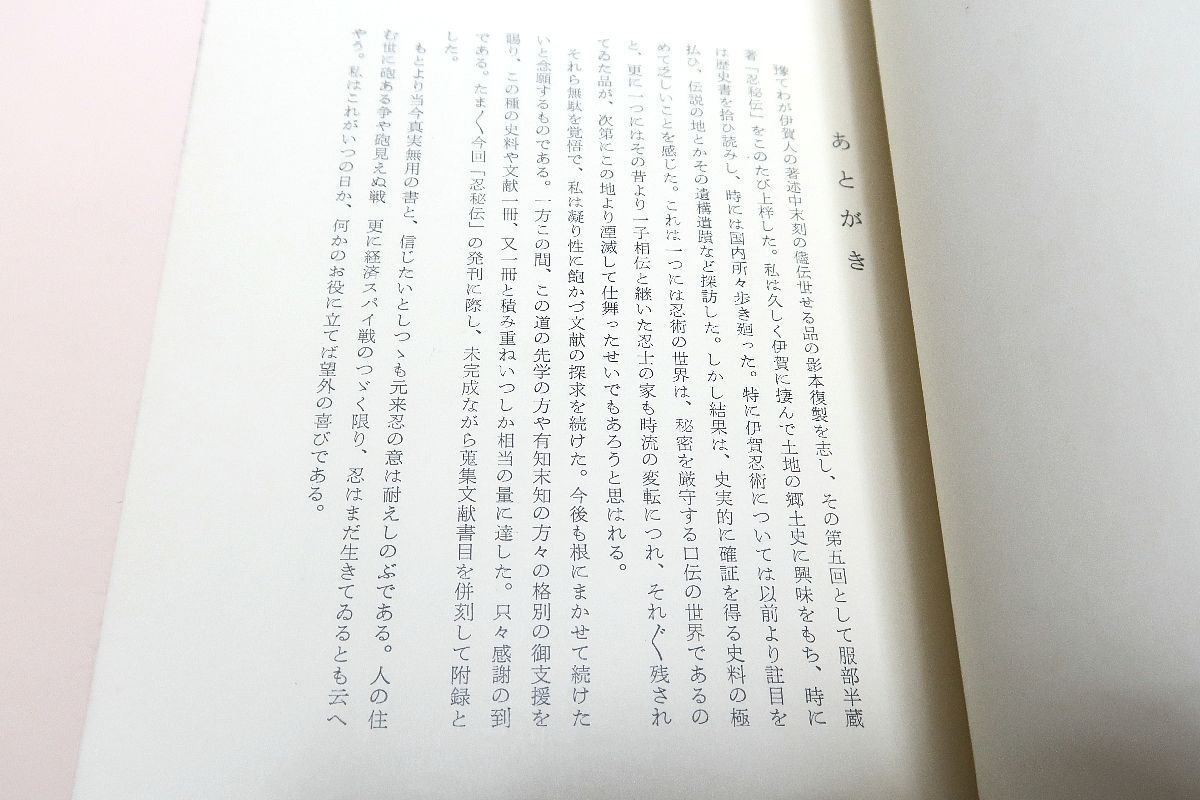 あとがき
豫てわが伊賀人の著述中末刻の儘伝世せる品の影本復製を志し、その第五回として服部半蔵
著「忍秘伝」をこのたび上梓した。私は久しく伊賀に棲んで土地の郷土史に興味をもち、時に
は歴史書を拾ひ読みし、時には国内所々歩き廻った。特に伊賀忍術については以前より註目を
払ひ、伝説の地とかその遺構遺蹟など探訪した。しかし結果は、史実的に確証を得る史料の極
めて乏しいことを感じた。これは一つには忍術の世界は、秘密を厳守する口伝の世界であるの
と、更に一つにはその昔より一子相伝と継いた忍士の家も時流の変転につれ、それ〴〵残され
てゐた品が、次第にこの地より湮滅して仕舞ったせいでもあろうと思はれる。
それら無駄を覚悟で、私は凝り性に飽かづ文献の探求を続けた。今後も根にまかせて続けた
いと念願するものである。一方この間、この道の先学の方や有知末知の方々の格別の御支援を
賜り、この種の史料や文献一冊、又一冊と積み重ねいつしか相当の量に達した。只々感謝の到
である。たま〱今回「忍秘伝」の発刊に際し、未完成ながら蒐集文献書目を併刻して附録と
した。
もとより当今真実無用の書と、信じたいとしつゝも元来忍の意は耐えしのぶである。人の住
む世に砲ある争や砲見えぬ戦　更に経済スパイ戦のつゞく限り、忍はまだ生きてゐるとも云へ
やう。私はこれがいつの日か、何かのお役に立てば望外の喜びである。